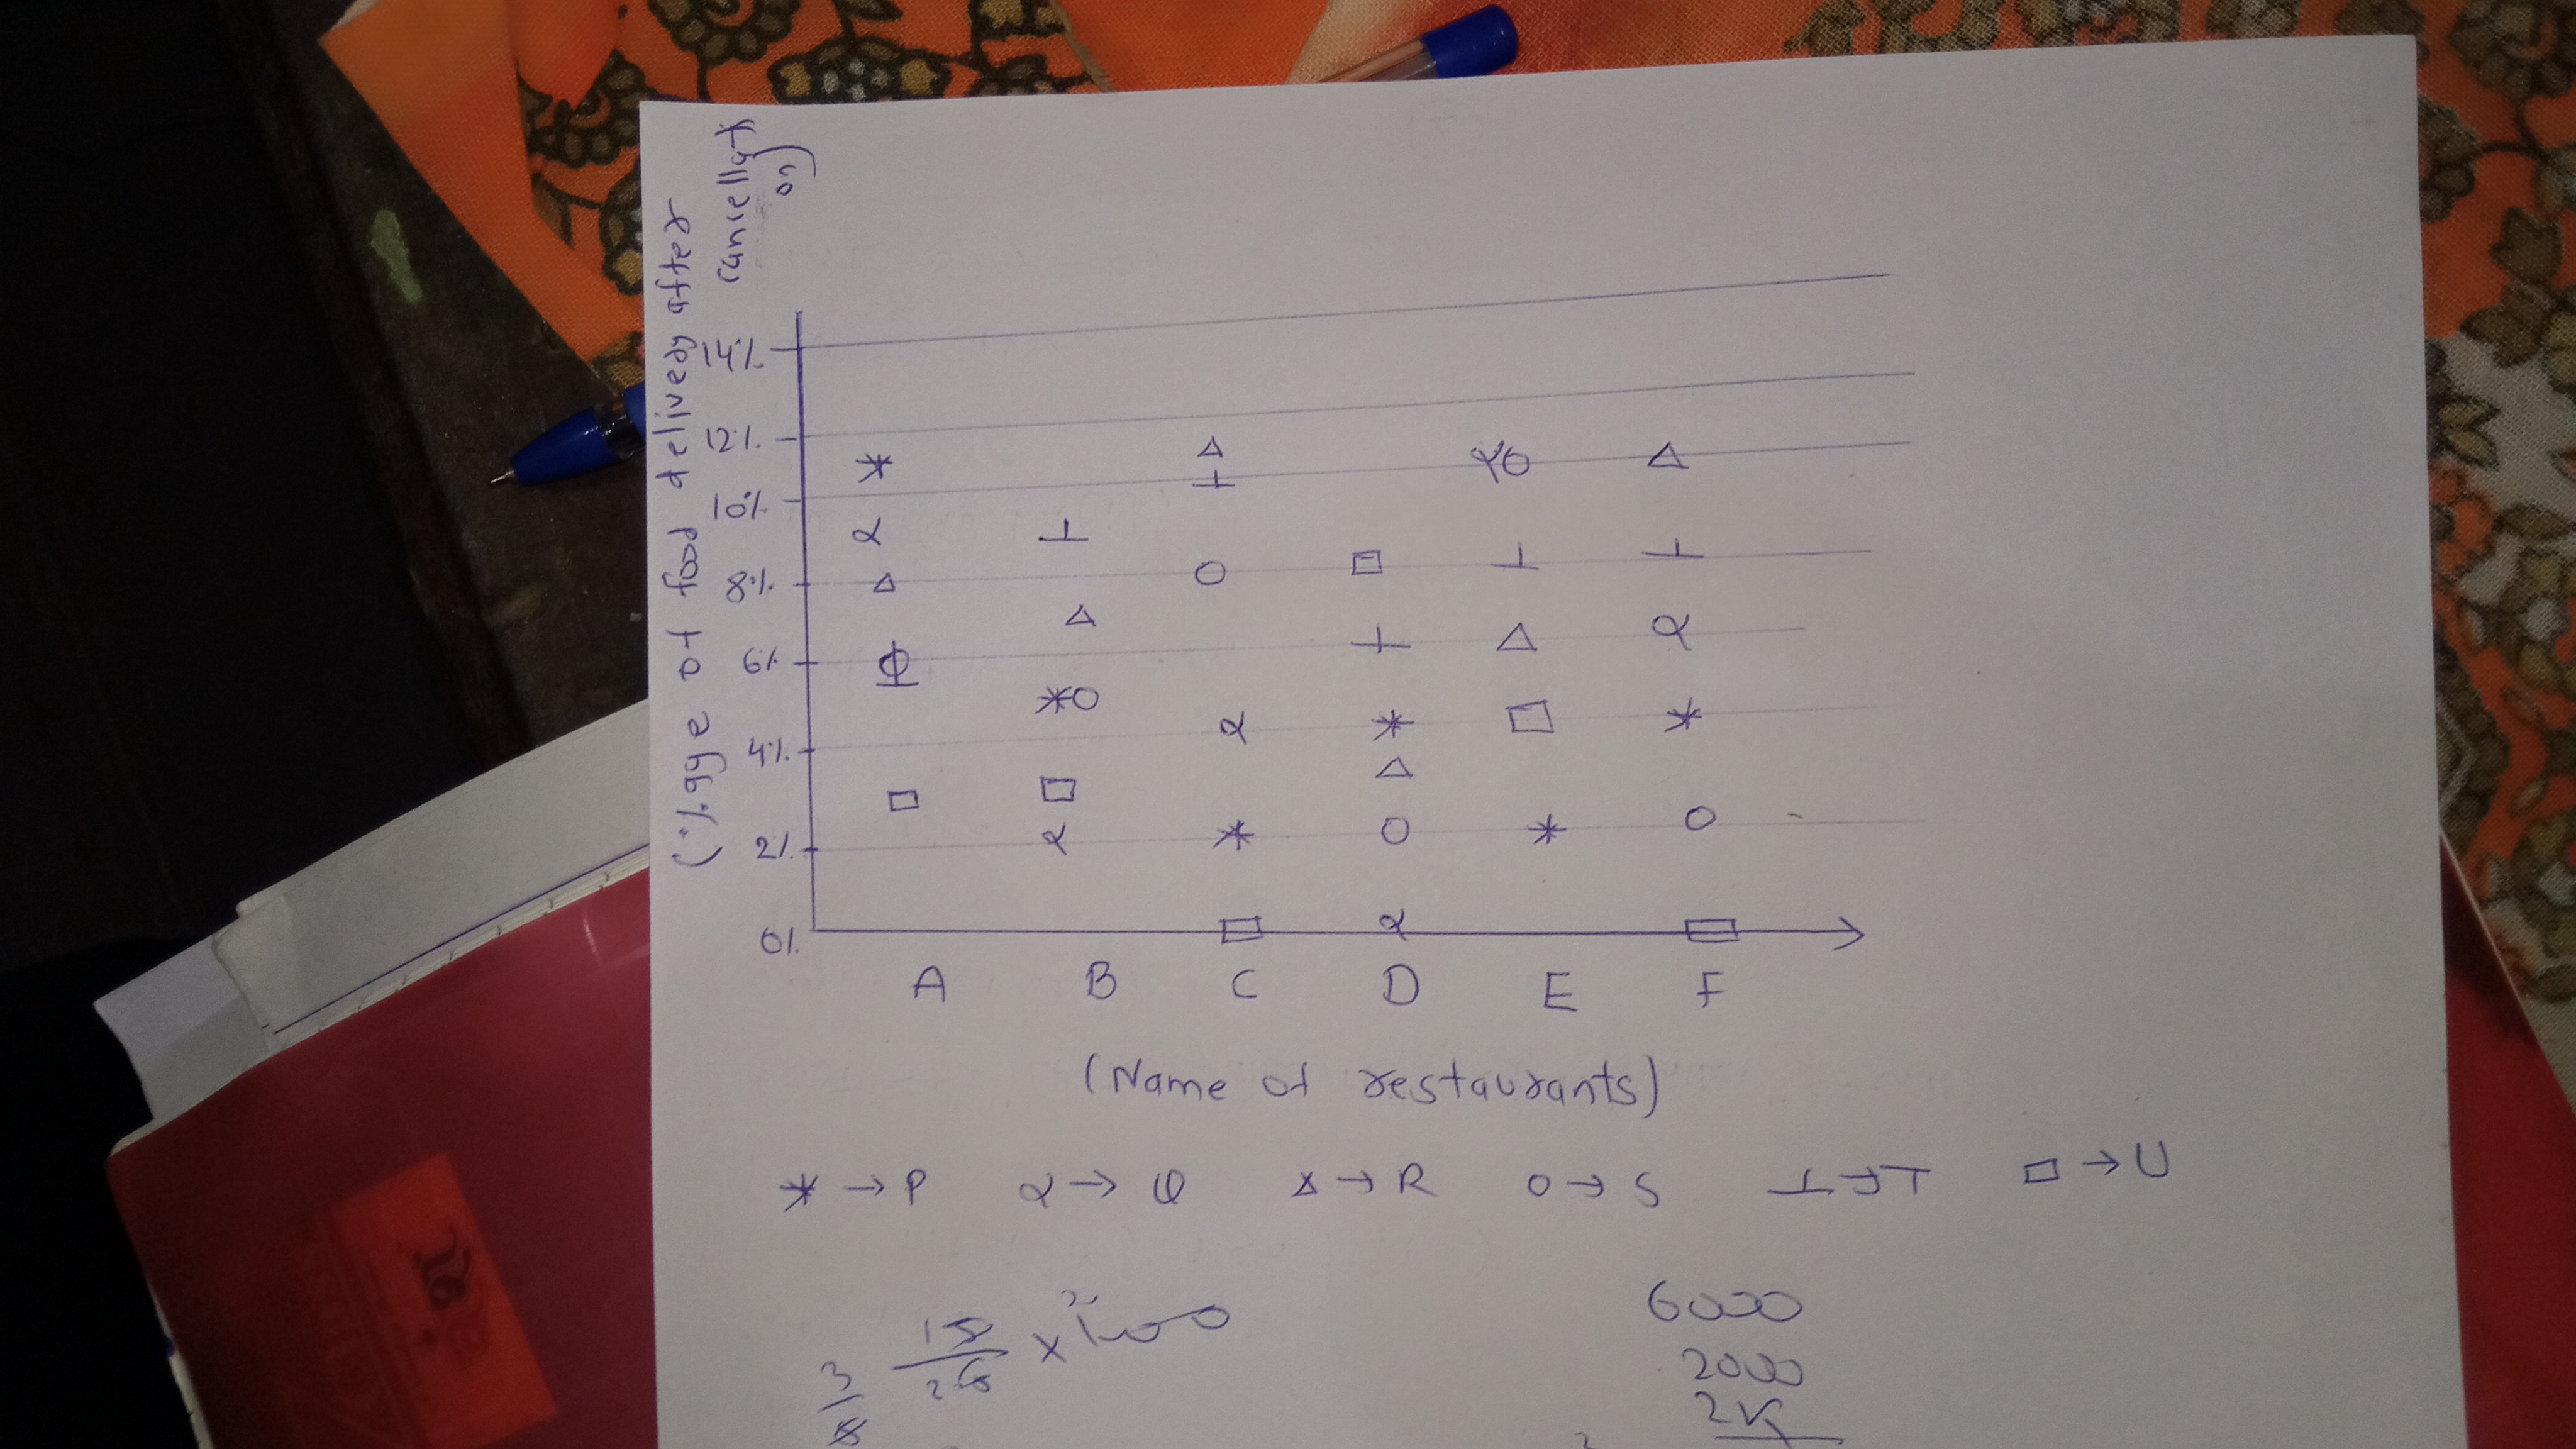 (%age of food delivery after
cancellati
on)
14%
12%
10%
8%
6%
4%
2%
0%
A B C D E F
(Name of restaurants)
* → P α → Q △ → R ○ → S ⊥ → T □ → U
15
26 × 100
3
8
6000
2000